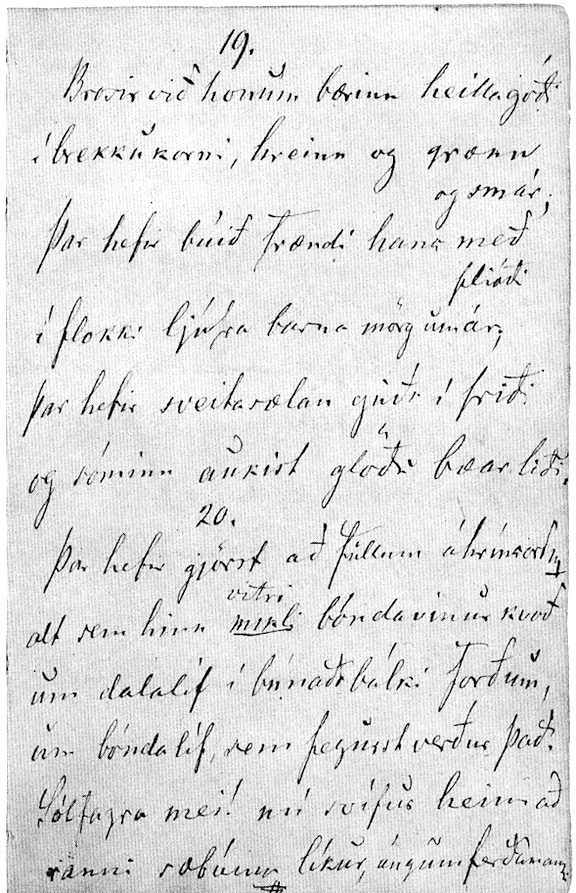 19.
Brosir við honum bærinn heillagóði
í brekkukorni, hreinn og grænn
og smár;
Þar hefir búið frændi hans með
fljóði
í flokki ljúfra barna mörg um ár;
þar hefir sveitasælan guðs í friði
og sóminn aukist glöðu bæarliði.
20.
Þar hefir gjörst að fullum áhrínsorðum
vitri
alt sem hinn mikli bóndavinur kvað
um dalalíf í búnaðsbálki forðum,
um bóndalíf, sem fegurst verður það.
Sólfagra mei! nú svífur heim að
ranni sæbúinn líkur, úngum ferðamanni.